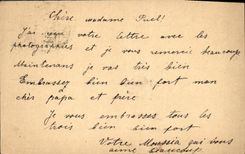 Chère madame Juel!
J'ai reçu votre lettre avec les
photographies et je vous remercie beaucoup
Maintenans je vas très bien
Embrassez bien bien fort mon
cher papa et frère
Je vous embrasses tous les
trois bien bien fort
Votre Moussia qui vous
aime